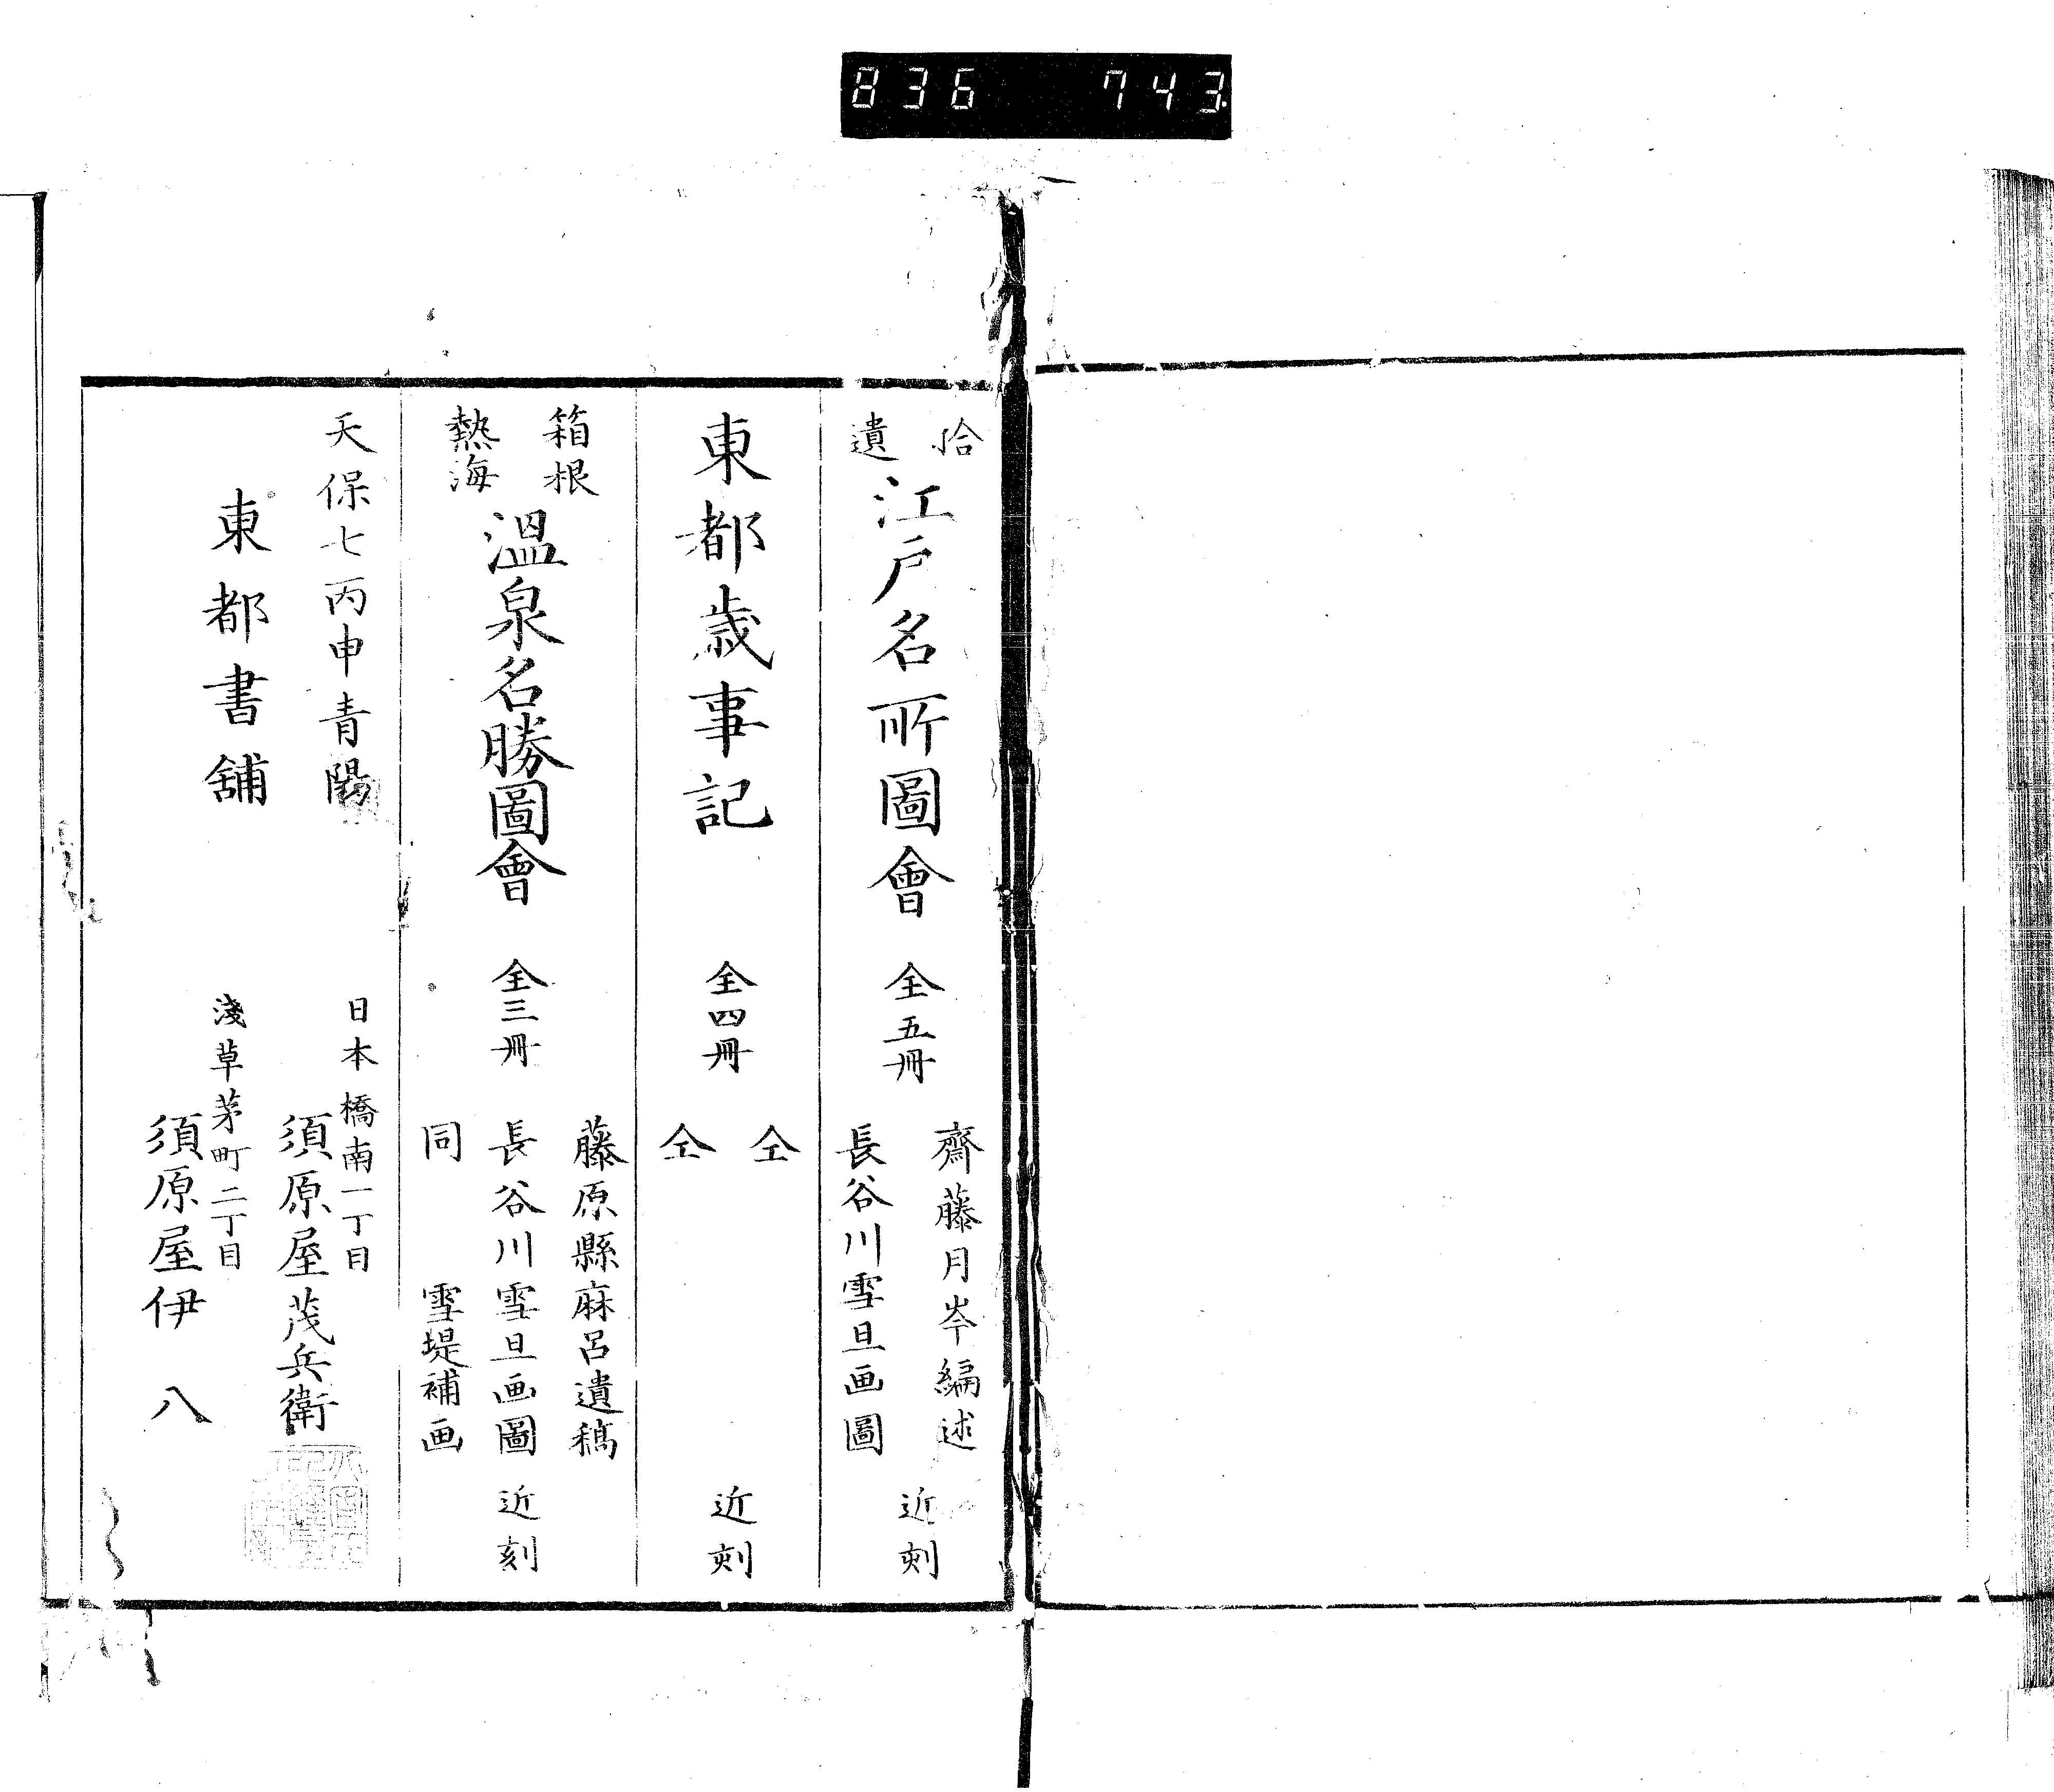 836 743
拾遺
江戸名所圖會 全五冊
齋藤月岑編述
長谷川雪旦画圖
近刻
東都歳事記 全四冊
仝
仝
近刻
箱根
熱海
温泉名勝圖會 全三冊
藤原縣麻呂遺稿
長谷川雪旦画圖
同 雪堤補画
近刻
天保七丙申青陽
東都書舗
日本橋南一丁目
須原屋茂兵衛
淺草茅町二丁目
須原屋伊八